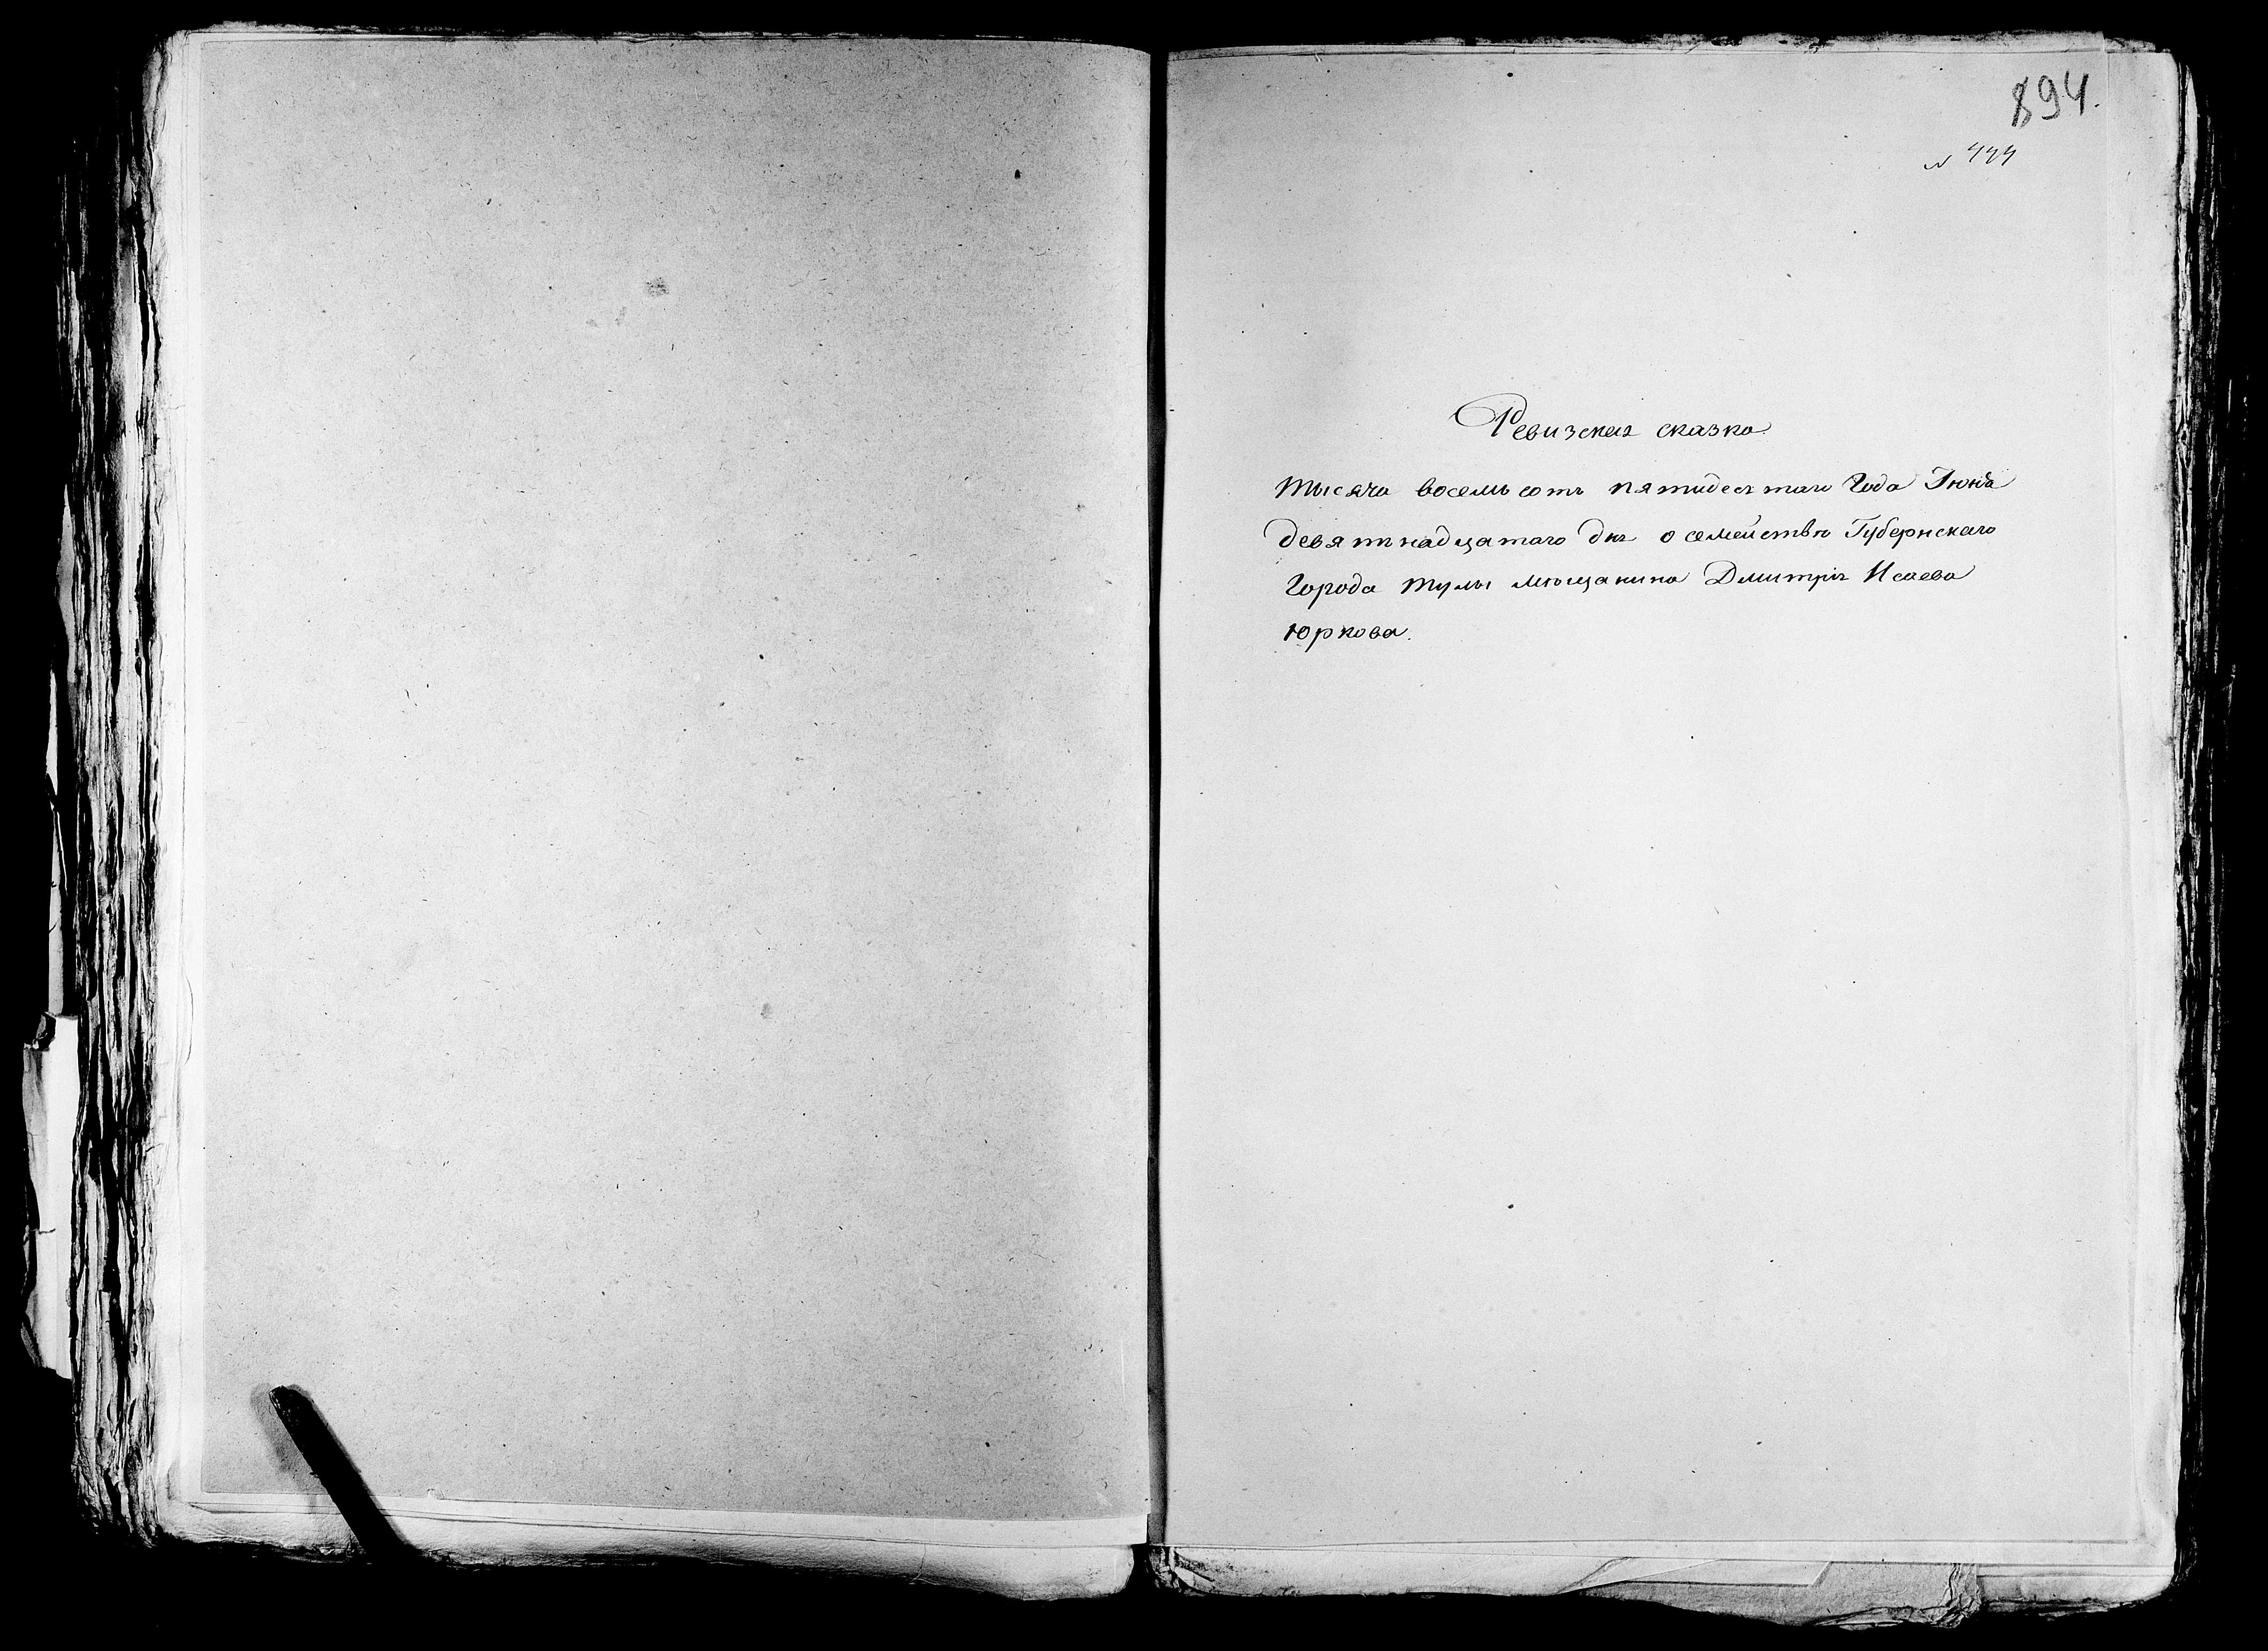 894.
N 444
Ревизская сказка
Тысяча восемьсотъ пятидесятаго Года Іюня
девятнадцатаго дня о семействѣ Губернскаго
Города Тулы мѣщанина Дмитрія Исаева
Юркова.